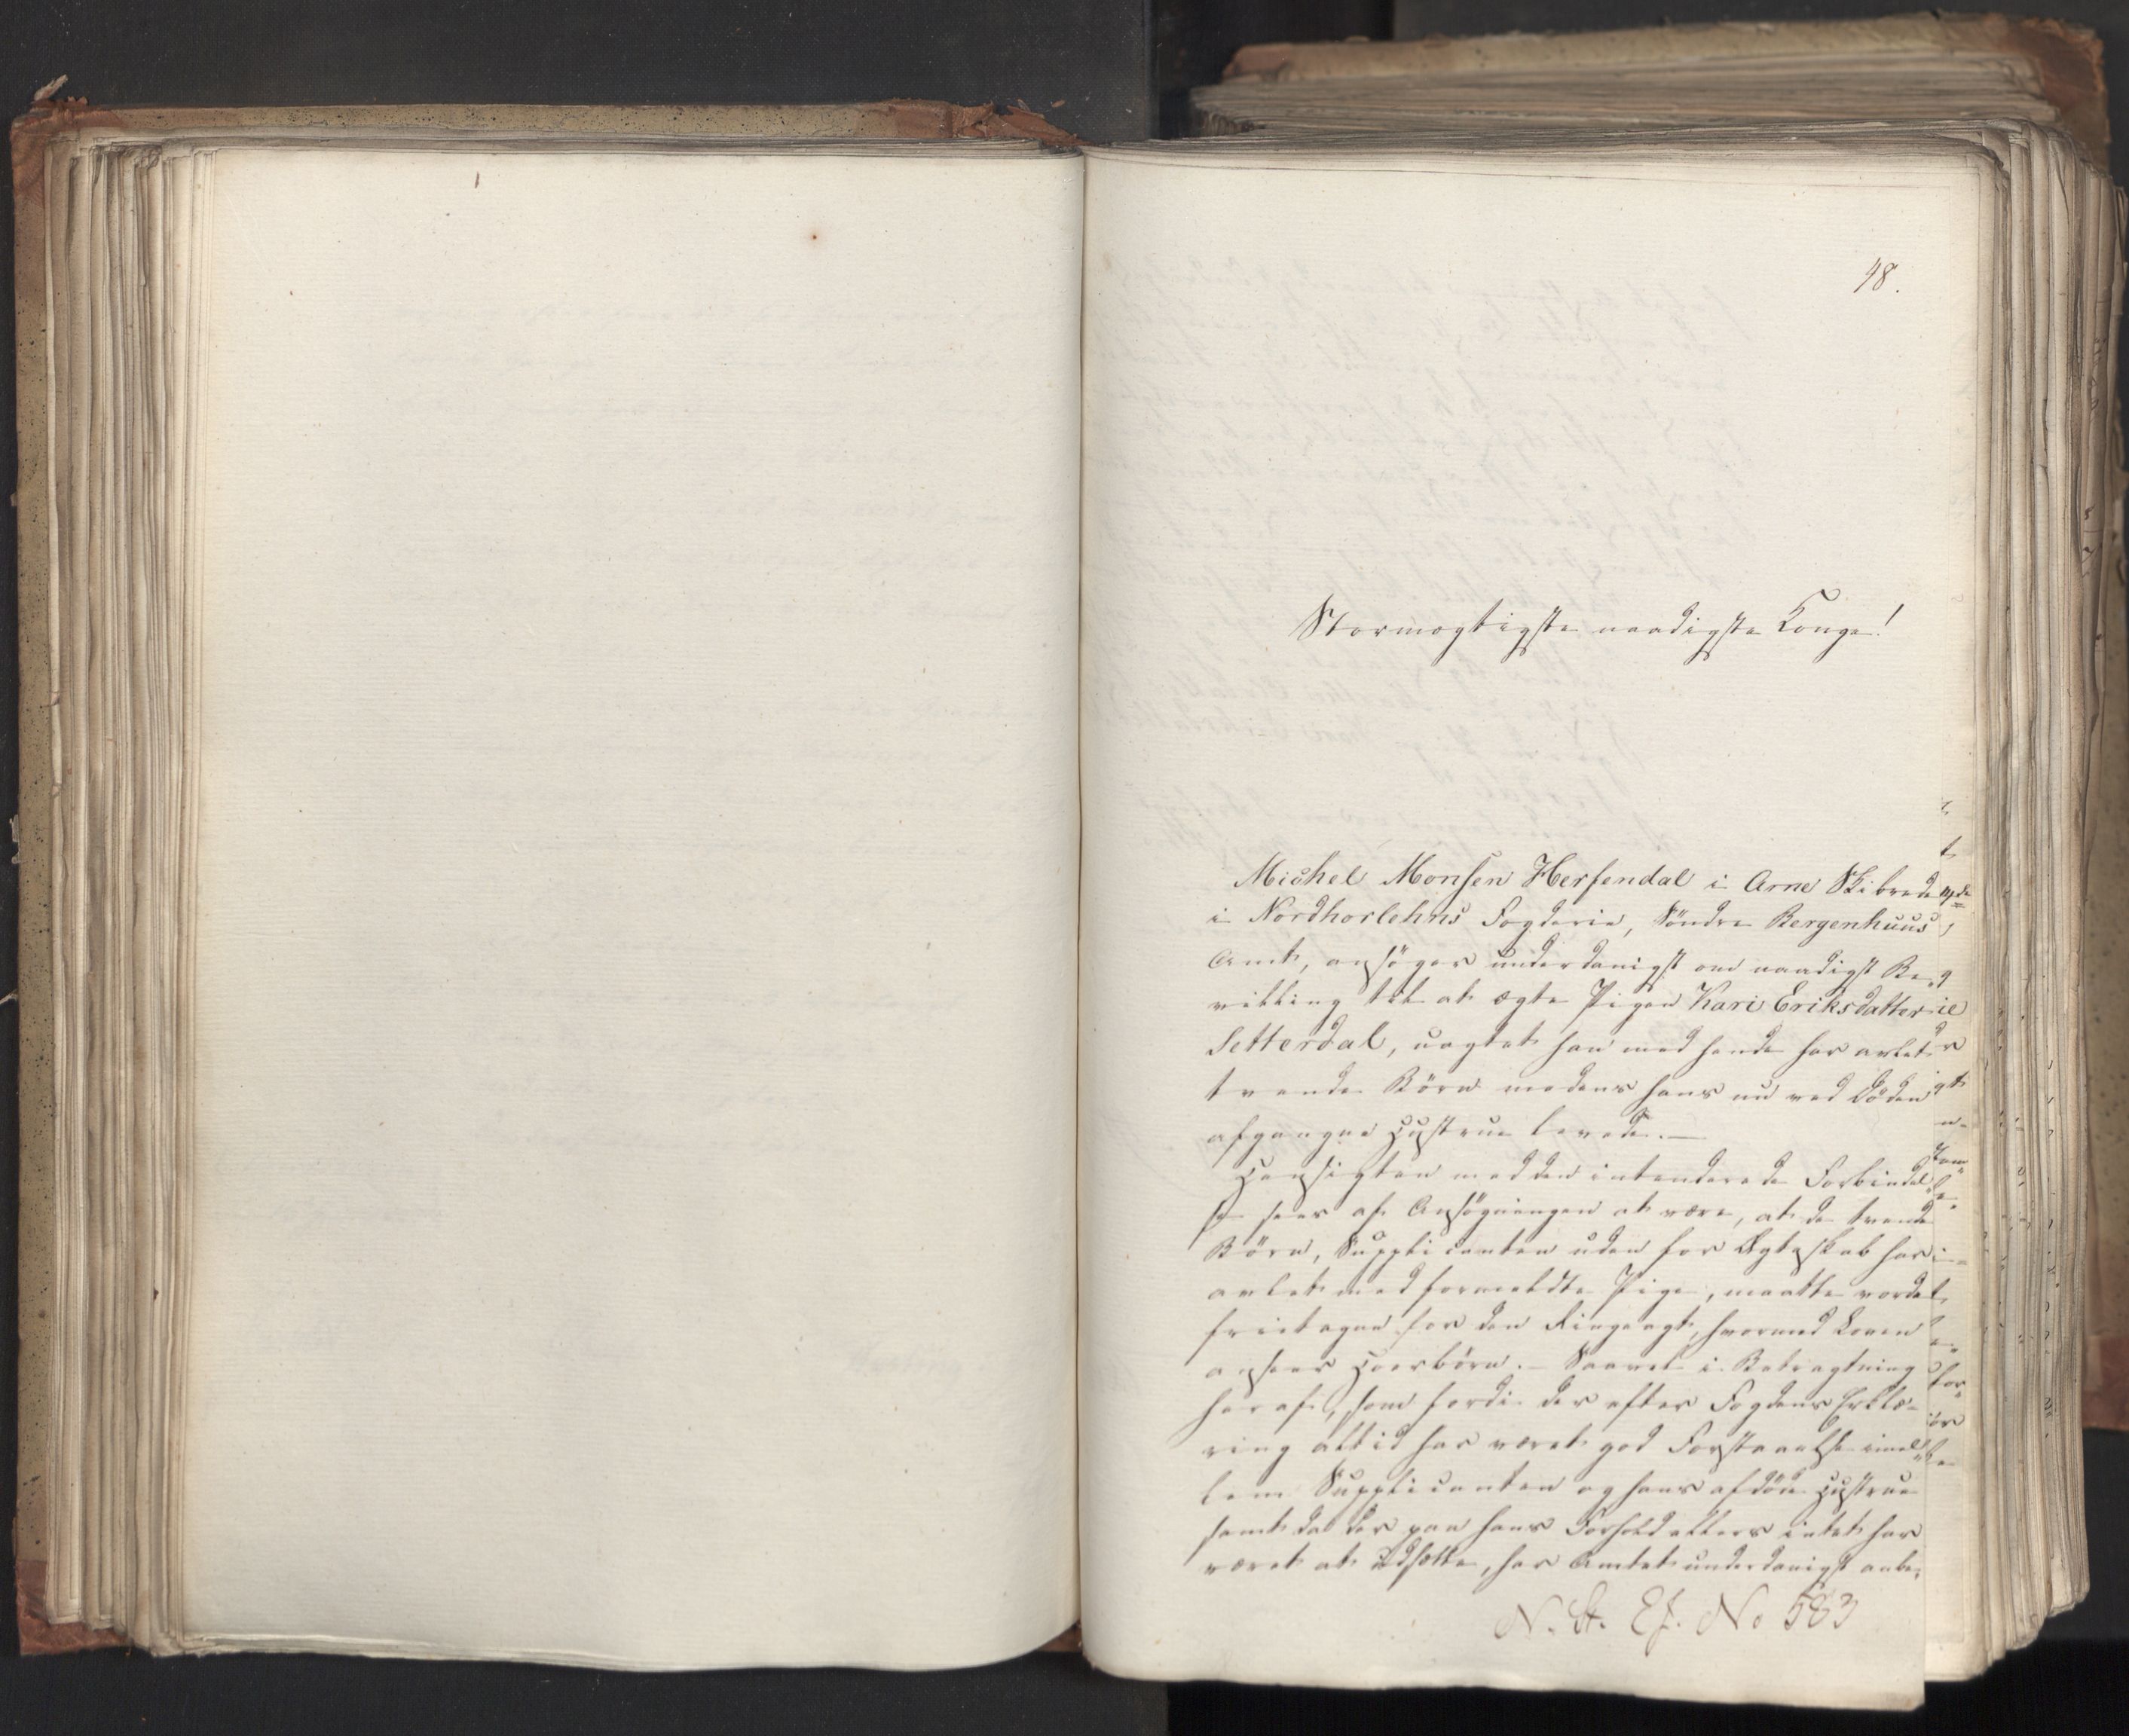 48.
Stormægtigste naadigste Konge!
Michel Monsen Herfendal i Arne Skibrede
i Nordhorlehns Fogderie, Söndre Bergenhuus
Amt, ansöger underdanigst om naadigst Be-
villing til at ægte Pigen Kari Eriksdatter
Setterdal, uagtet han med hende har avlet
tvende Börn medens hans nu ved Döden
afgangne Hustrue levede.—
Hensigten med den intenderede Forbindel-
se sees af Ansögningen at være, at de tvende
Börn, Supplicanten uden for Ægteskab har
avlet med formeldte Pige, maatte vorde
fritagne for den Ringeagt, hvormed Loven
ansees Hoerbörn.— Saavel i Betragtning
heraf, som fordi der efter Fogdens Erklæ-
ring altid har været god Forstaaelse imel-
lem Supplicanten og hans afdöde Hustrue
samt da der paa hans Forhold ellers intet har
været at udsætte, har Amtet underdanigst anbe-
N. St. Ef. No 583